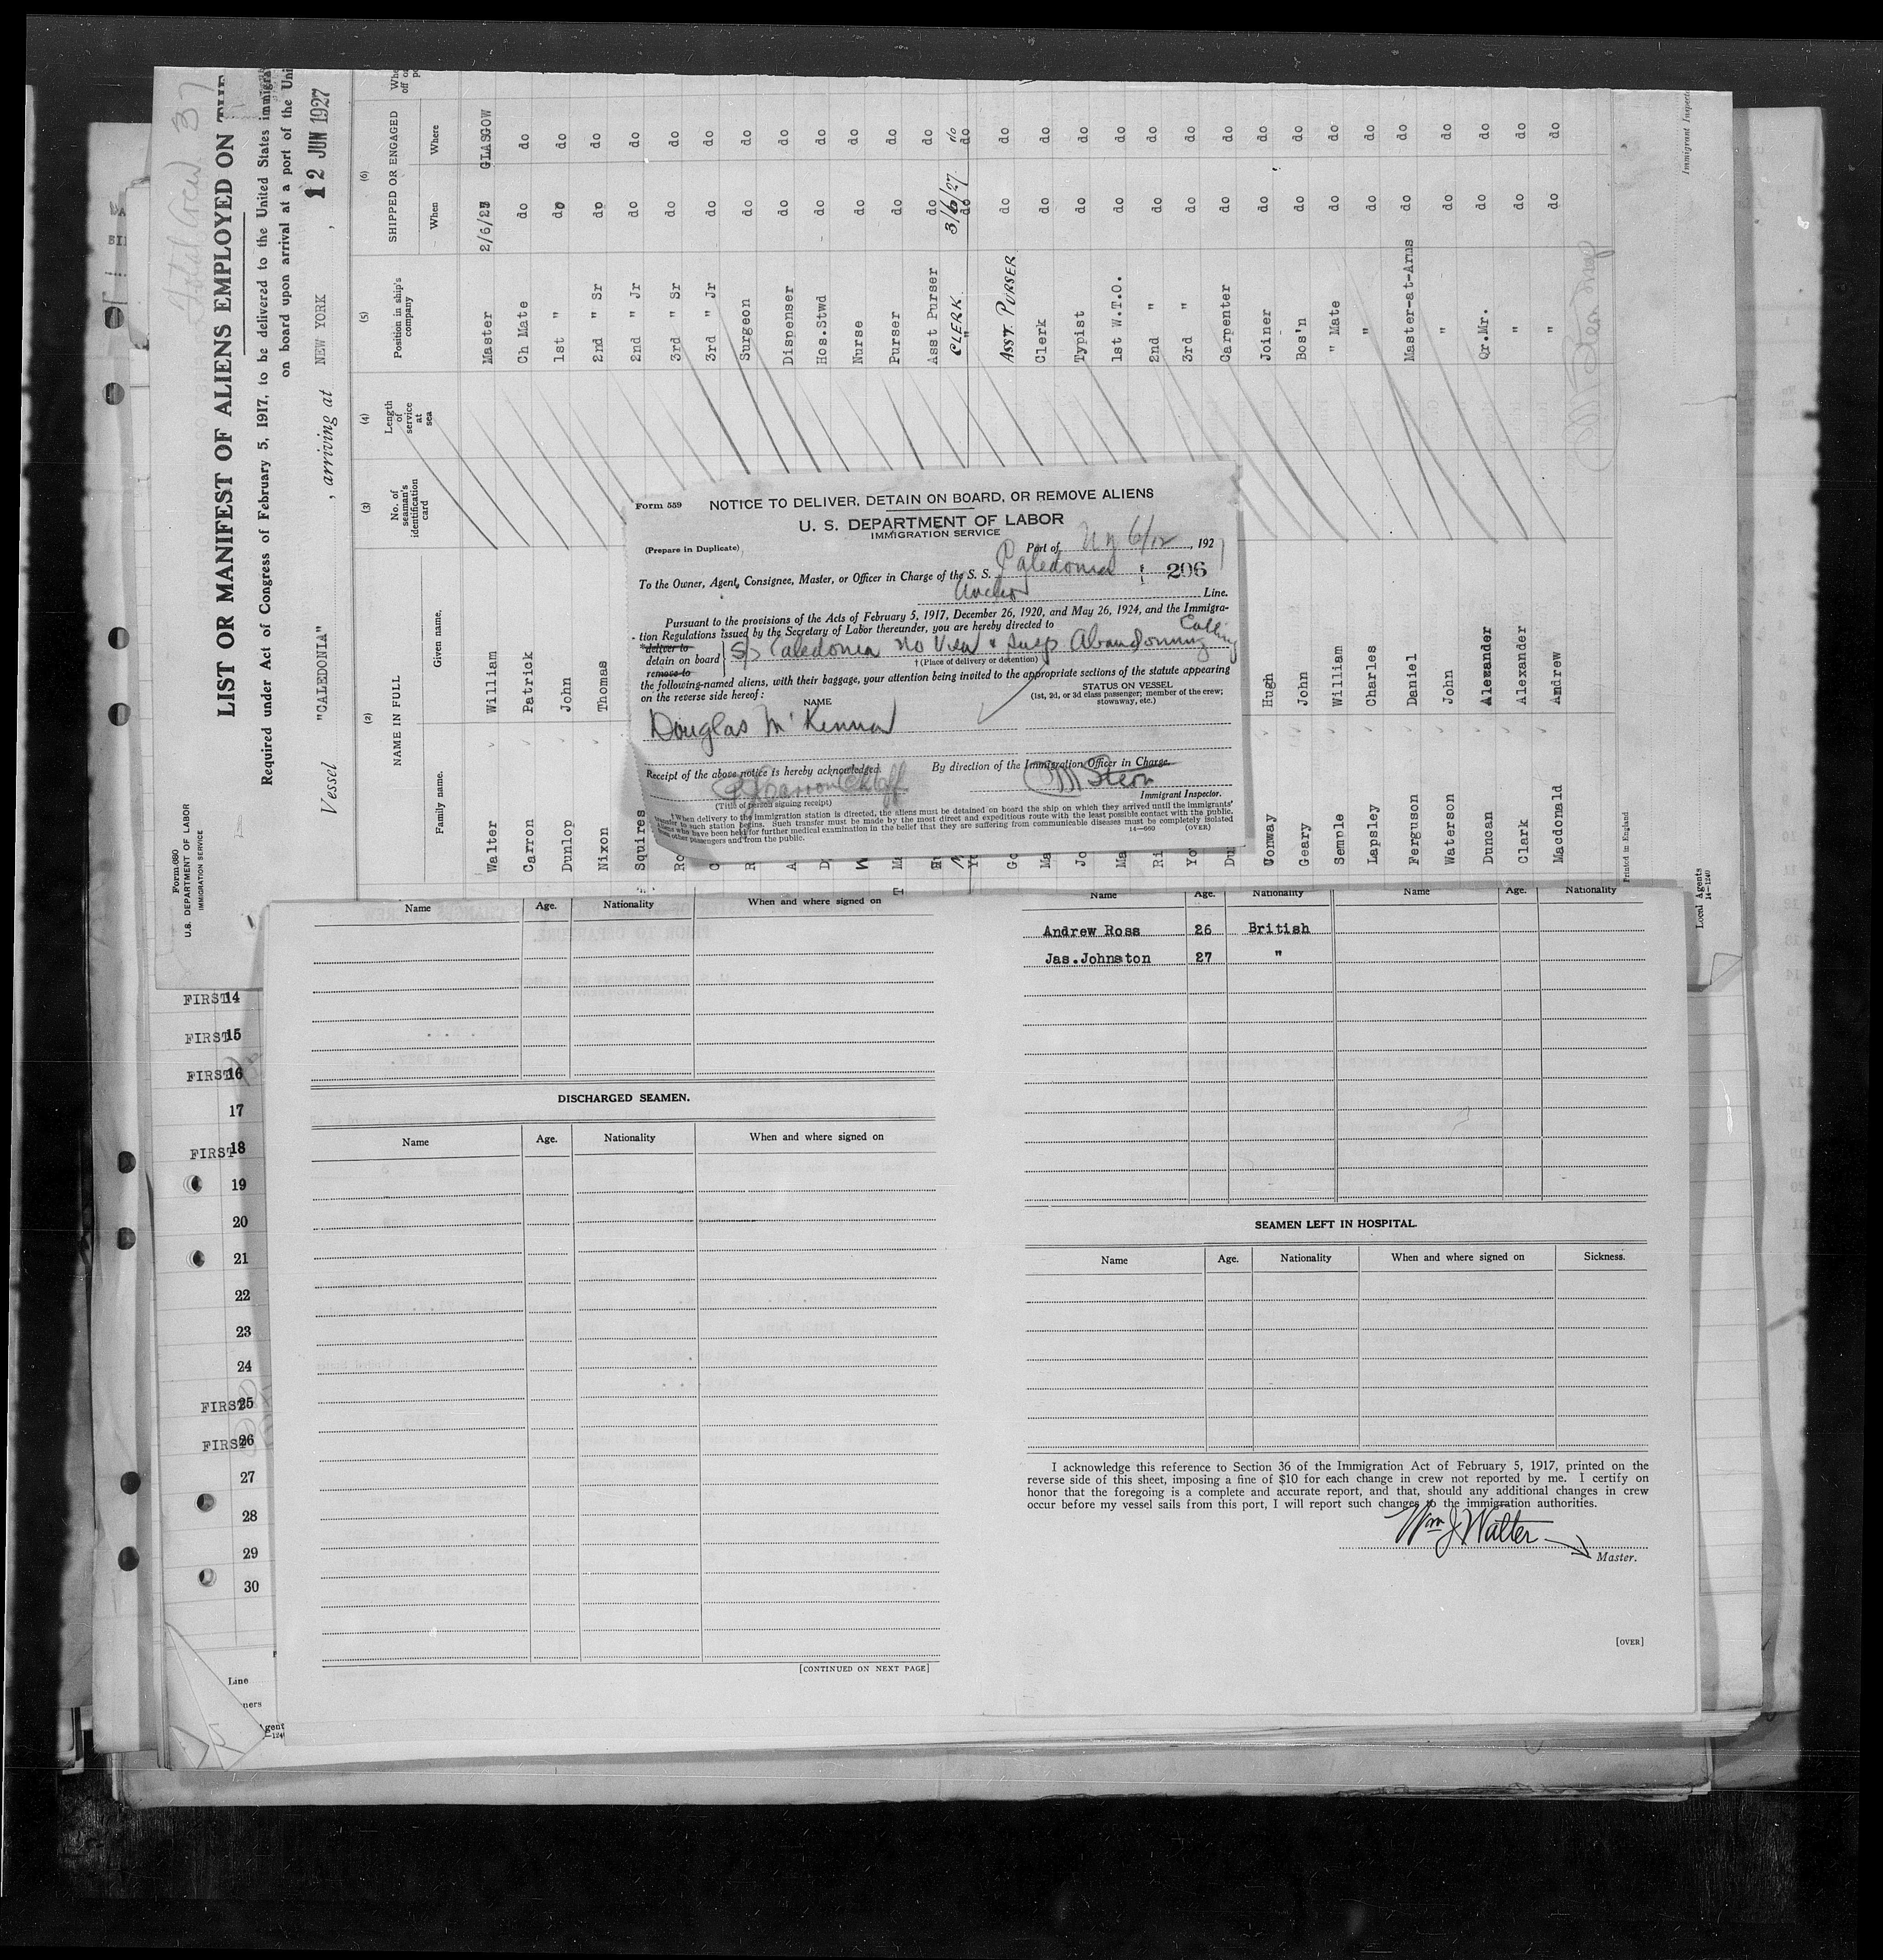 Total Crew 37
Form 680
U. S. DEPARTMENT OF LABOR
IMMIGRATION SERVICE
LIST OR MANIFEST OF ALIENS EMPLOYED ON THE
Required under Act of Congress of February 5, 1917, to be delivered to the United States immigra
on board upon arrival at a port of the Uni
Vessel "CALEDONIA" , arriving at NEW YORK , 12 JUN 1927
(2) (3) (4) (5) (6)
NAME IN FULL
Family name. Given name.
No. of seaman's identification card
Length of service at sea
Position in ship's company
SHIPPED OR ENGAGED
When Where
Walter William Master 2/6/27 GLASGOW
Carron Patrick Ch Mate do do
Dunlop John 1st " do do
Nixon Thomas 2nd " Sr do do
Squires 2nd " Jr do do
3rd " Sr do do
3rd " Jr do do
Surgeon do do
Dispenser do do
Hos.Stwd do do
Nurse do do
Purser do do
Asst Purser do do
CLERK 3/6/27 do
" do do
ASST. PURSER do do
Clerk do do
Typist do do
1st W.T.O. do do
2nd " do do
3rd " do do
Carpenter do do
Conway Hugh Joiner do do
Geary John Bos'n do do
Semple William " Mate do do
Lapsley Charles " do do
Ferguson Daniel Master-at-Arms do do
Waterson John " do do
Duncan Alexander Qr.Mr. do do
Clark Alexander " do do
Macdonald Andrew " do do
Printed in England
Immigrant Inspecto
Local Agents
14-1240
Form 559
NOTICE TO DELIVER, DETAIN ON BOARD, OR REMOVE ALIENS
U. S. DEPARTMENT OF LABOR
IMMIGRATION SERVICE
(Prepare in Duplicate)
Port of NY 6/12, 1927
To the Owner, Agent, Consignee, Master, or Officer in Charge of the S. S. Caledonia 206
Anchor Line.
Pursuant to the provisions of the Acts of February 5, 1917, December 26, 1920, and May 26, 1924, and the Immigra-
tion Regulations issued by the Secretary of Labor thereunder, you are hereby directed to
*deliver to
detain on board
remove to
S/S Caledonia no Visa & susp Abandonning Calling
† (Place of delivery or detention)
the following-named aliens, with their baggage, your attention being invited to the appropriate sections of the statute appearing
on the reverse side hereof:
NAME
STATUS ON VESSEL
(1st, 2d, or 3d class passenger; member of the crew;
stowaway, etc.)
Douglas McKenna
Receipt of the above notice is hereby acknowledged.
By direction of the Immigration Officer in Charge.
Stern
(Title of person signing receipt)
Immigrant Inspector.
†When delivery to the immigration station is directed, the aliens must be detained on board the ship on which they arrived until the immigrants'
transfer to such station begins. Such transfer must be made by the most direct and expeditious route with the least possible contact with the public.
Aliens who have been held for further medical examination in the belief that they are suffering from communicable diseases must be completely isolated
other passengers and from the public.
14—660 (OVER)
Name Age. Nationality When and where signed on
DISCHARGED SEAMEN.
Name Age. Nationality When and where signed on
[CONTINUED ON NEXT PAGE]
Name Age. Nationality Name Age. Nationality
Andrew Ross 26 British
Jas.Johnston 27 "
SEAMEN LEFT IN HOSPITAL.
Name Age. Nationality When and where signed on Sickness.
I acknowledge this reference to Section 36 of the Immigration Act of February 5, 1917, printed on the
reverse side of this sheet, imposing a fine of $10 for each change in crew not reported by me. I certify on
honor that the foregoing is a complete and accurate report, and that, should any additional changes in crew
occur before my vessel sails from this port, I will report such changes to the immigration authorities.
Wm J Walter
Master.
[OVER]
FIRST 14
FIRST 15
FIRST 16
17
FIRST 18
19
20
21
22
23
24
FIRST 25
FIRST 26
27
28
29
30
Line